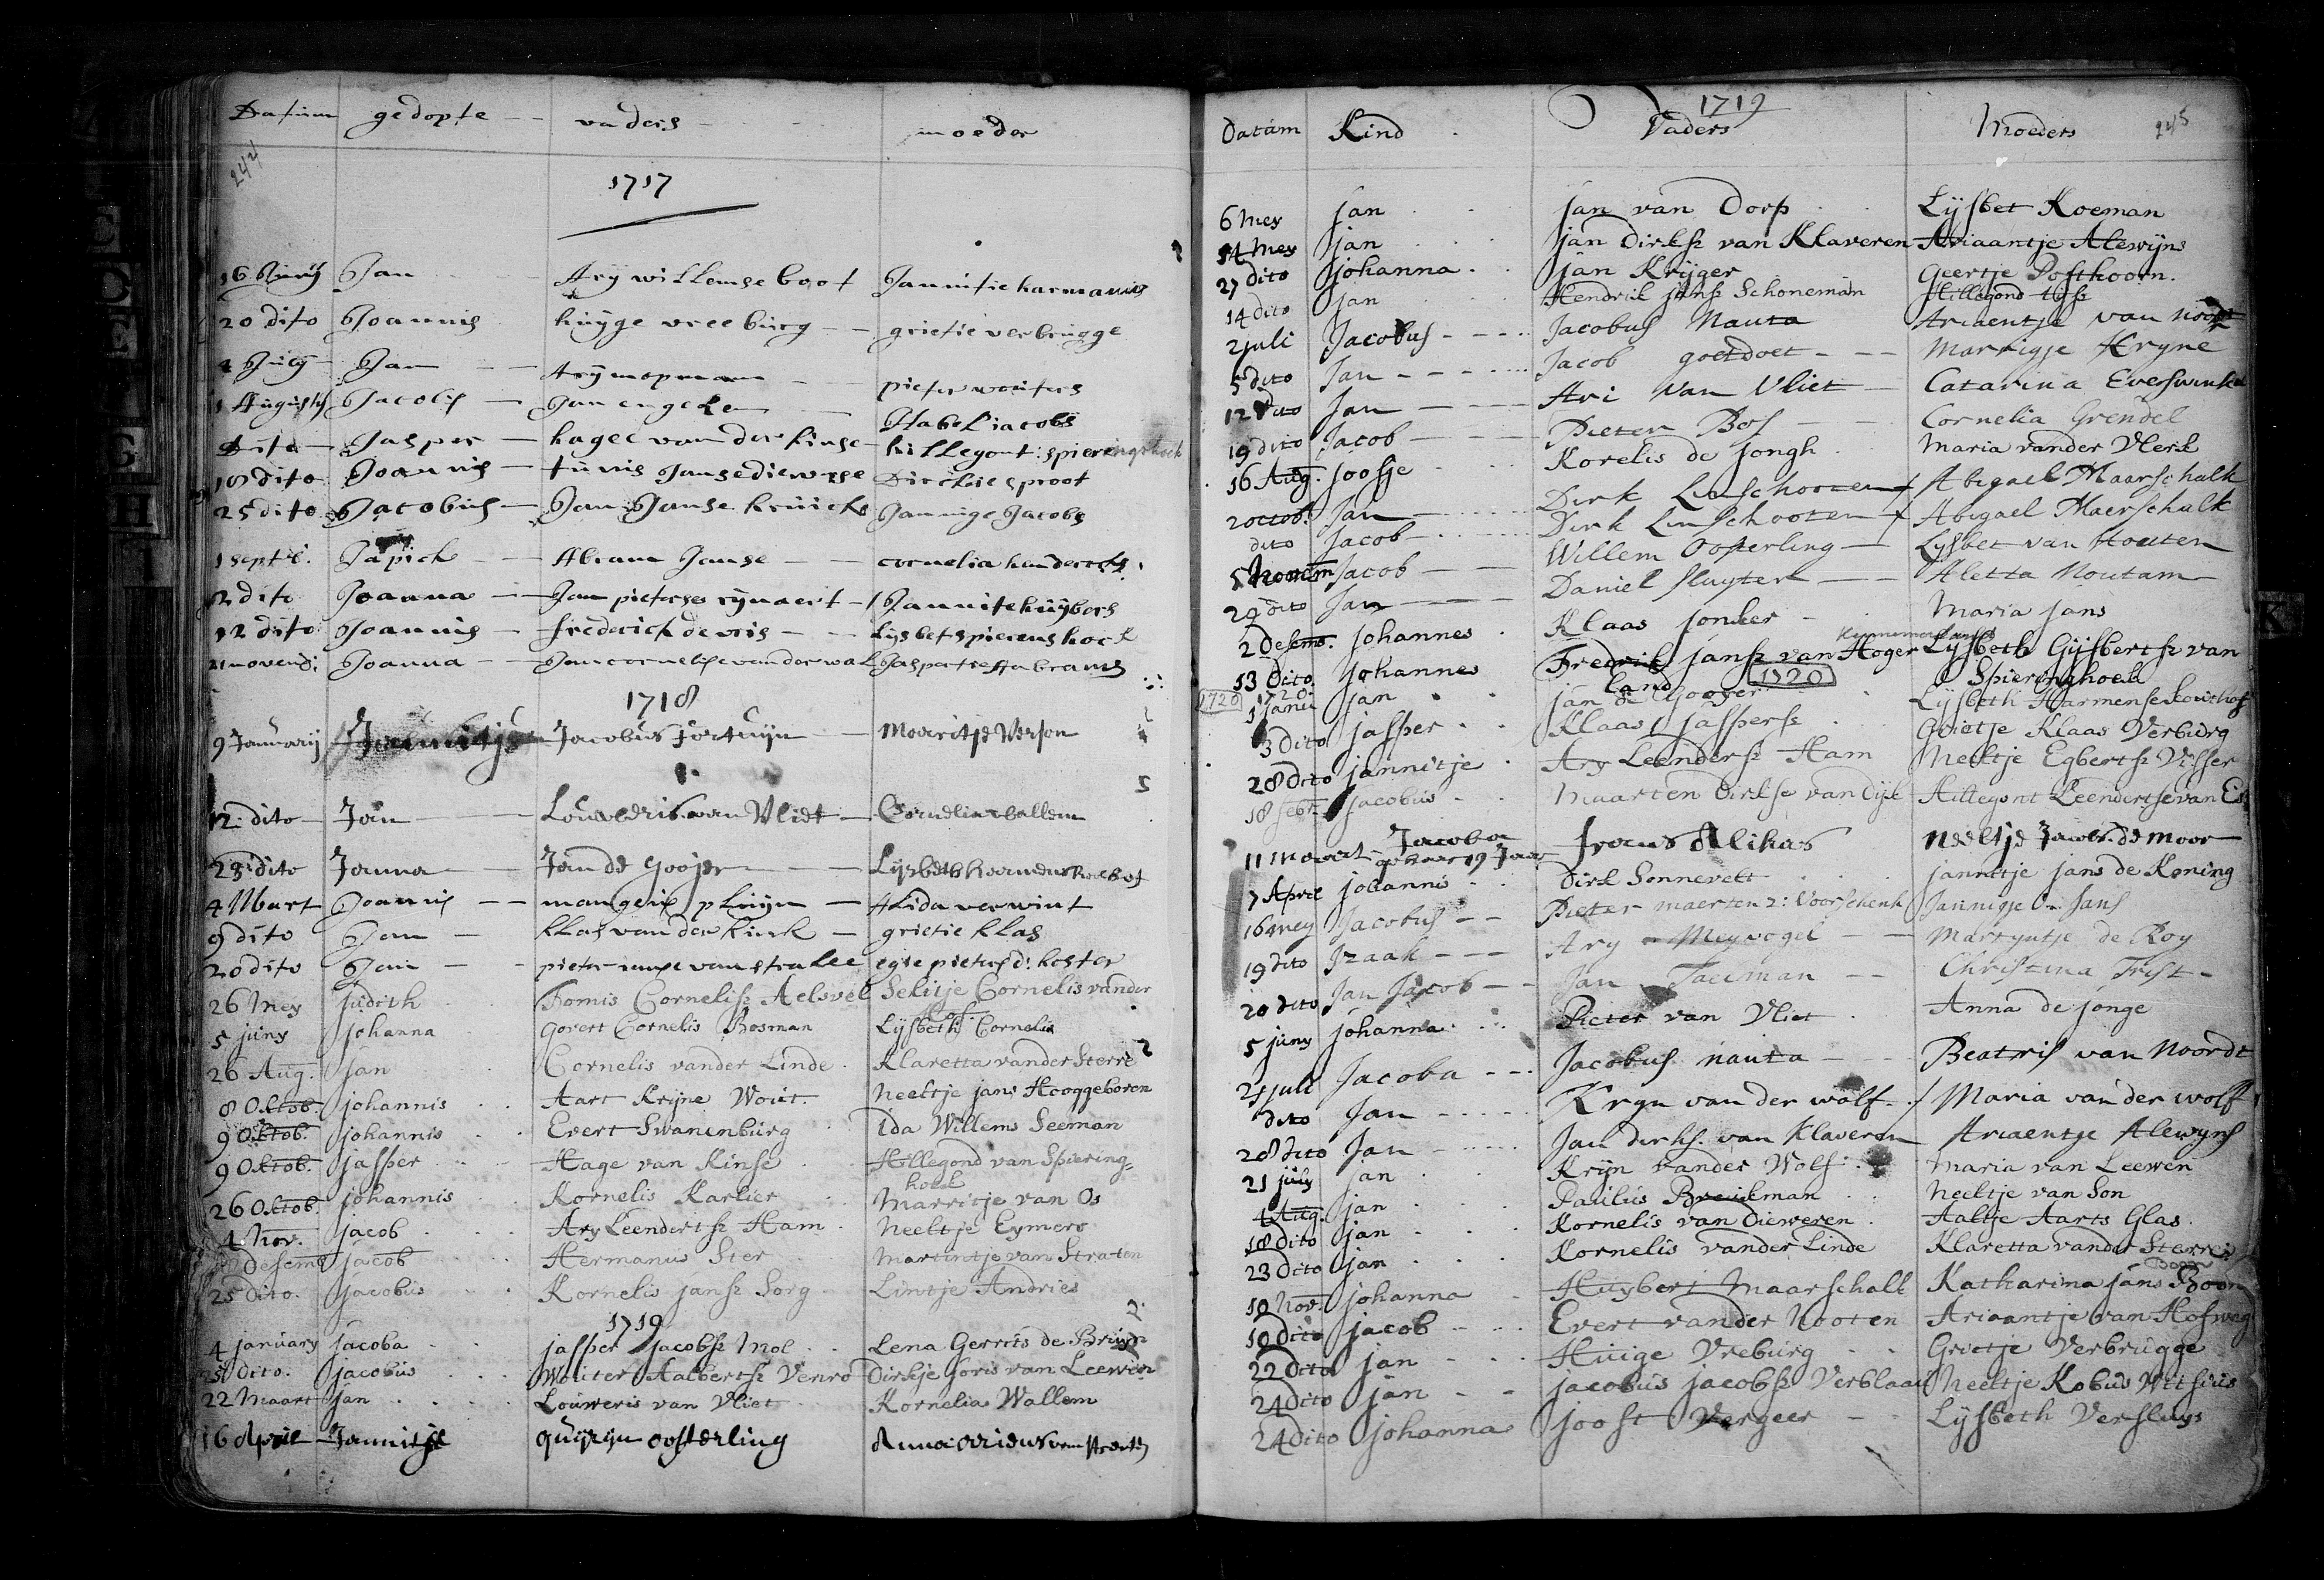 Datum gedopte vaders moeder
244
1717
16 Junij Jan Arij willemse boot Jannitie harmanus
20 dito Joannis huijge vreeburg grietie verbrugge
4 Julij Jan Arij mopman pieter wouters
1 Augustus Jacobus Jan engelen Isabel jacobs
dito Jasper hagee van der kinse hillegont: spieringshoek
18 dito Joannis tunis Janse diewerse Dirckie sproot
25 dito Jacobus Jan Janse kruick Jannige Jacobs
1 septe: Japick Abram Janse cornelia hendericks
12 dito Joanna Jan pieterse rijnaert Jannite huijbers
12 dito Joannis frederick de vris Lijsbet spierenshoeck
21 novemb: Joanna Jan cornelisse van der wal Jaspertie Abrams
1718
9 Januarij Jannitje Jacobus Fortuijn Maaritje Verson
12 dito Jan Louweris van Vliet Cornelia Wallem
23 dito Janna Jan de Gooijer Lijsbeth Harmens Kouhof
4 Mart Joannis mangeis pluijm Alida verwint
9 dito Jan Klas van der kink grietie klas
20 dito Jan pieter janse van stralee egie pieters d: koster
26 Mey Judith Tomis Cornelisz Aelsvel Seltje Cornelis vander
hof
5 juny Johanna Govert Cornelis Bosman Lijsbeth Cornelis
26 Aug. Jan Cornelis vander Linde Klaretta vander Sterre
8 Oktob. johannis Aart Krijne Wout Neeltje jans Hooggeboren
9 Oktob. johannis Evert Swanenburg Ida Willems Seeman
9 Oktob. jasper Hage van Kinse Hillegond van Spiering-
hoek
26 Oktob. johannis Kornelis Karlier Marritje van Os
4 Nov. jacob Ary Leendertsz Ham Neeltje Eymers
Desemb jacob Hermanus Ster Martintje van Straten
25 dito. jacobus Kornelis jansz Sorg Lintje Andries
1719
4 january jacoba jasper jacobsz Mol Lena Gerrits de Bruijn
25 dito. jacobus Wouter Aalbertsz Venro Dirkje Joris van Leewen
22 Maart jan Louweris van Vliet Kornelia Wallem
16 April Jannitje Quirijn oosterling Anna Ariens van straten
1719
Datum Kind Vaders Moeders 245
6 Mey jan jan van Dorp Lijsbet Koeman
14 Mey jan jan Dirksz van Klaveren Ariaantje Alewijns
27 dito johanna jan Krijger Geertje Posthoorn.
14 dito jan Hendrik jansz Schoneman Hillegond Tijsz
2 juli Jacobus Jacobus Nauta Ariaentje van noort
5 dito Jan Jacob goetdoet Marrigje Kryne
12 dito Jan Ari van Vliet Catarina Everswinkel
19 dito Jacob Pieter Bos Cornelia Grendel
16 Aug. joosje Korelis de Jongh Maria vander Vlerk
2 octob. Jan Dirk Linschooten Abigael Maarschalk
dito Jacob Dirk Linschooten Abigael Maerschalk
5 Novem Jacob Willem Oosterling Lysbet van Houten
29 dito Jan Daniel Sluyter Aletta Noutam
2 Desemb. johannes Klaas jonker Maria jans
Kennemerlants
13 Dito johannes Fredrik jansz van Hoger Lysbeth Gijsbertsz van
land 1720 Spieringhoek
1720 1720. 1 janu jan jan de Gooyer Lijsbeth Harmense Kouhof
3 dito jasper Klaas jaspersz Grietje Klaas Verburg
28 dito jannitje Ary Leendersz Ham Neeltje Egbertsz Visser
18 febr. jacobus Maarten Dirkse van Dijk Hillegont Leendertse van Es
11 maart Jacoba Frans Elikas neeltje Jacobs. de moor
gebooren 19 Jan
7 April johannis Dirk Sonnevelt janntje jans de Koning
16 mey Jacobus Pieter maertenz: Voorschenh Jannigje Jans
19 dito Izaak Ary Meyvogel Martyntje de Roy
20 dito Jan Jacob Jan Taceman Christina Trist
5 juny johanna Pieter van Vliet Anna de jonge
21 juli Jacoba Jacobus nauta Beatris van Noordt
dito Jan Kryn van der wolf Maria van der wolf
28 dito Jan Jan derks. van Klaveren Ariaentge Alewyns
21 july jan Krijn vander Wolf Maria van Leewen
4 Aug. jan Paulus Breukman Neeltje van Son
18 dito jan Kornelis van Dieweren Aaltje Aarts Glas.
23 dito jan Kornelis vander Linde Klaretta vander Sterre
Boon
10 Nov. johanna Huybert Maarschalk Katharina jans Boon
10 dito jacob Evert vander Nooten Ariaantje van Hofweg
22 dito jan Huige Vreburg Grietje Verbrugge
24 dito jan jacobus jacobsz Verblaau Neeltje Kobus Witsius
24 dito johanna joost Vergeer Lysbeth Versluys